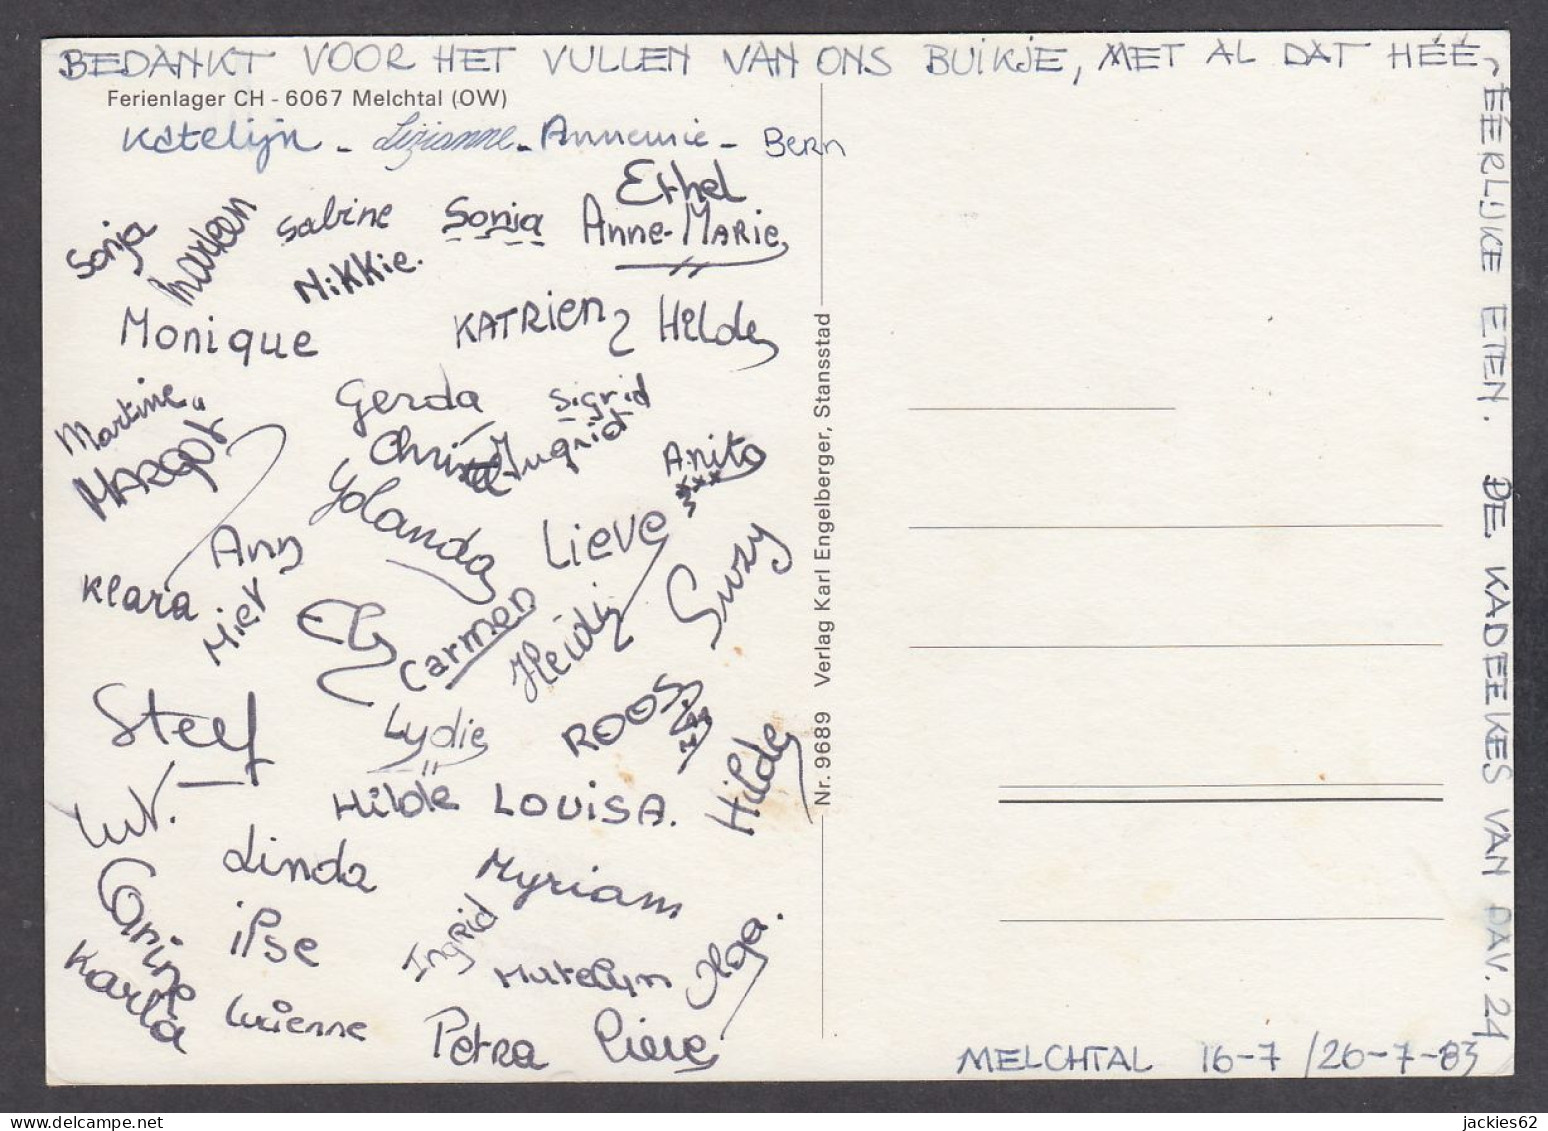 BEDANKT VOOR HET VULLEN VAN ONS BUIKJE, MET AL DAT HÉÉ-
ÉÉERLIJKE ETEN. DE KADEEKES VAN PAV. 24
Ferienlager CH - 6067 Melchtal (OW)
Katelijn - Lizianne - Annemie - Bern
Ethel
Sonja Marleen Sabine Sonja Anne-Marie
Nikkie.
Monique KATRIEN Hilde
Martine Gerda Sigrid
MARGOT Christel Ingrid Anita
xxx
Yolanda
Ann Lieve Suzy
Klara Miet Els Carmen Heidi
Steef Lydie ROOS Hilde
Lut. Hilde LOUISA.
Linda Myriam
Carine ilse Ingrid Katelijn Olga.
Karla Lucienne Petra Lieve
Nr. 9689 Verlag Karl Engelberger, Stansstad
MELCHTAL 16-7 / 26-7-83
jackies62